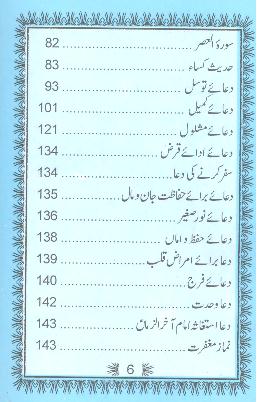 سورۃ العصر 82
حدیث کساء 83
دعائے توسل 93
دعائے کمیل 101
دعائے مشلول 121
دعائے ادائے قرض 134
سفر کرنے کی دعا 134
دعائے برائے حفاظت جان و مال 135
دعائے نور صغیر 136
دعائے حفظ و اماں 138
دعا برائے امراض قلب 139
دعائے فرج 140
دعا وحدت 142
دعا استغاثہ امام آخر الزماںؑ 143
نماز مغفرت 143
6